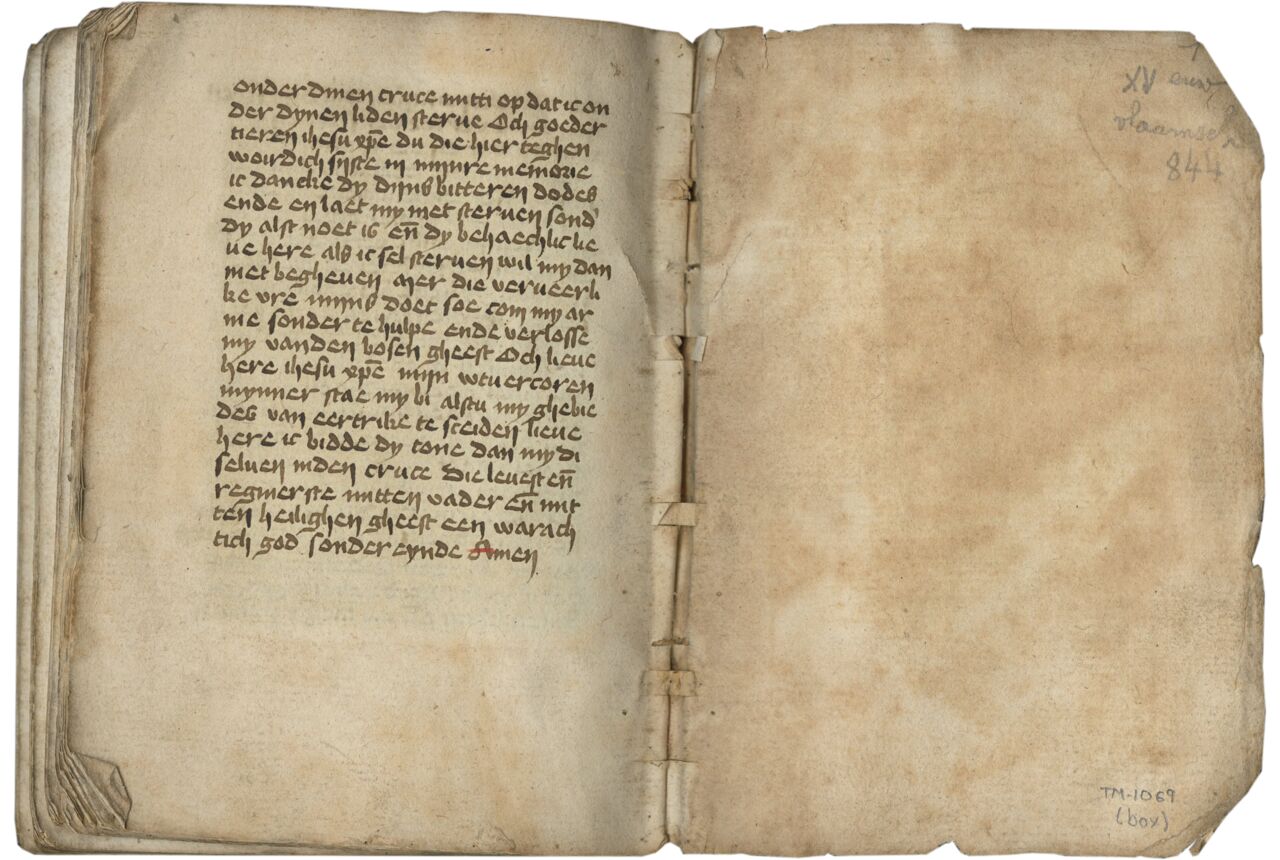 onder dinen cruce mitti op dat ic on
der dynen liden sterve Och goeder
tieren ihesu xp̄e du die hier teghen
woirdich sijste in mijnre memorie
ic dancke dy dijns bitteren dodes
ende en laet my niet sterven sond'
dy alst noet is en̄ dy behaechlic lie
ve here als ic sel sterven wil my dan
niet begheven Mer die verveerli
ke vre mijns doet soe com my ar
me sonder te hulpe ende verlosse
my vanden bosen gheest Och lieve
here ihesu xp̄e mijn wtvercoren
mynner stae my bi alstu my ghebie
des van eertrike te sceiden lieve
here ic bidde dy tone dan my di
selven inden cruce Die levest en̄
regnierste mitten vader en̄ mit
ten heilighen gheest een warach
tich god sonder eynde Amen
XV euw
vlaamse
844
TM-1069
(box)